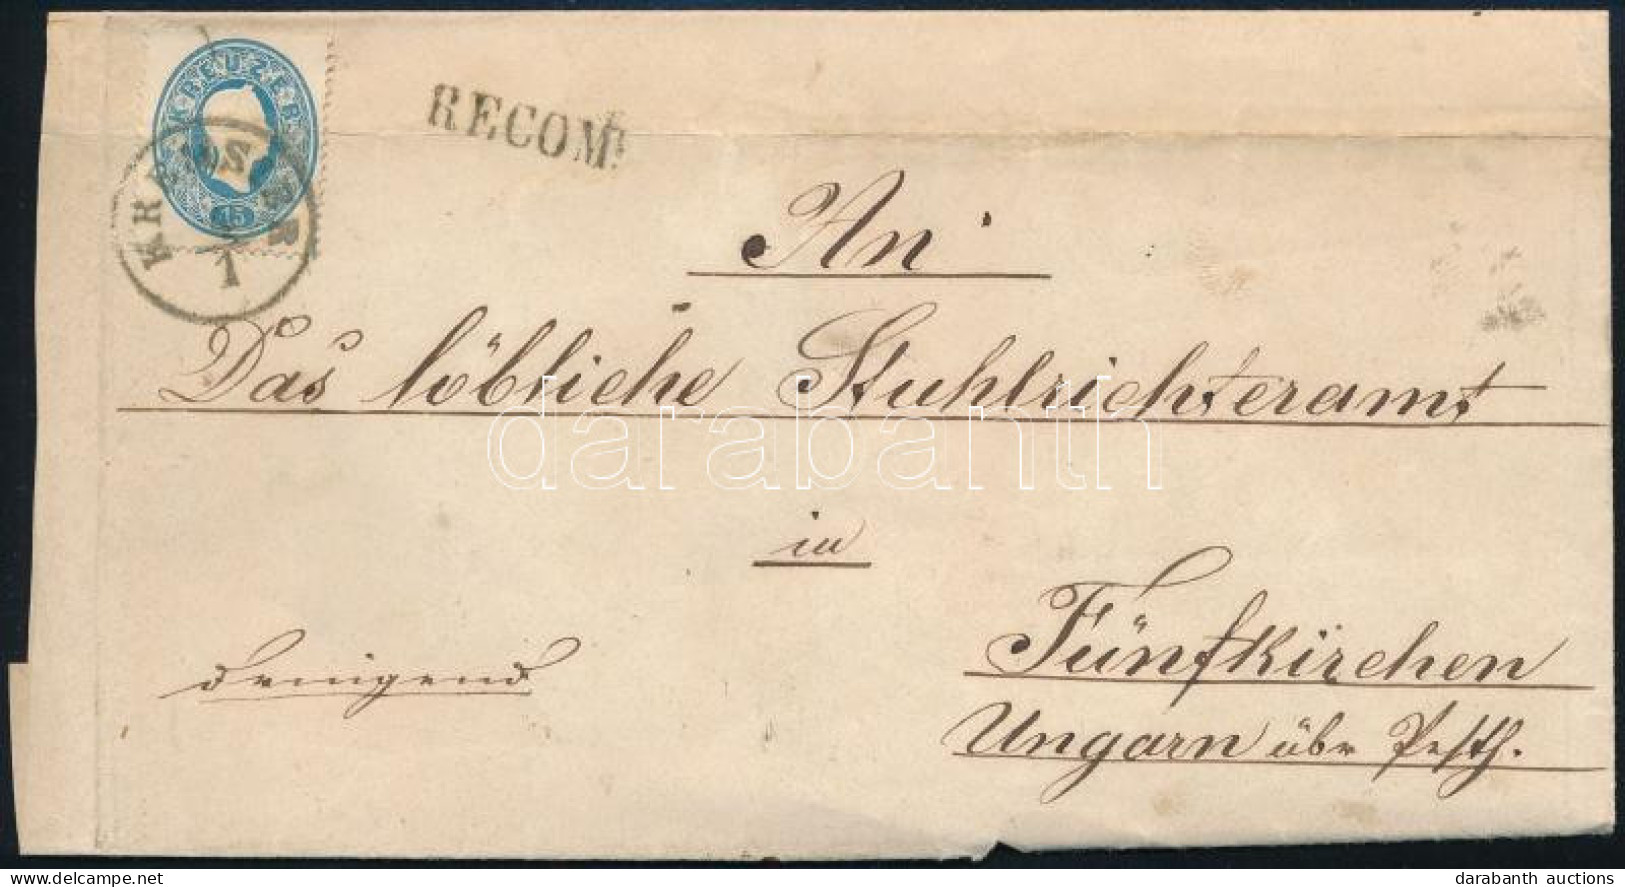 KREUZER
15
RECOM:
An
Das löbliche Stuhlrichteramt
darabanth
in
Fünfkirchen
dringend
Ungarn über Pesth.
darabanth auctions
www.delcampe.net